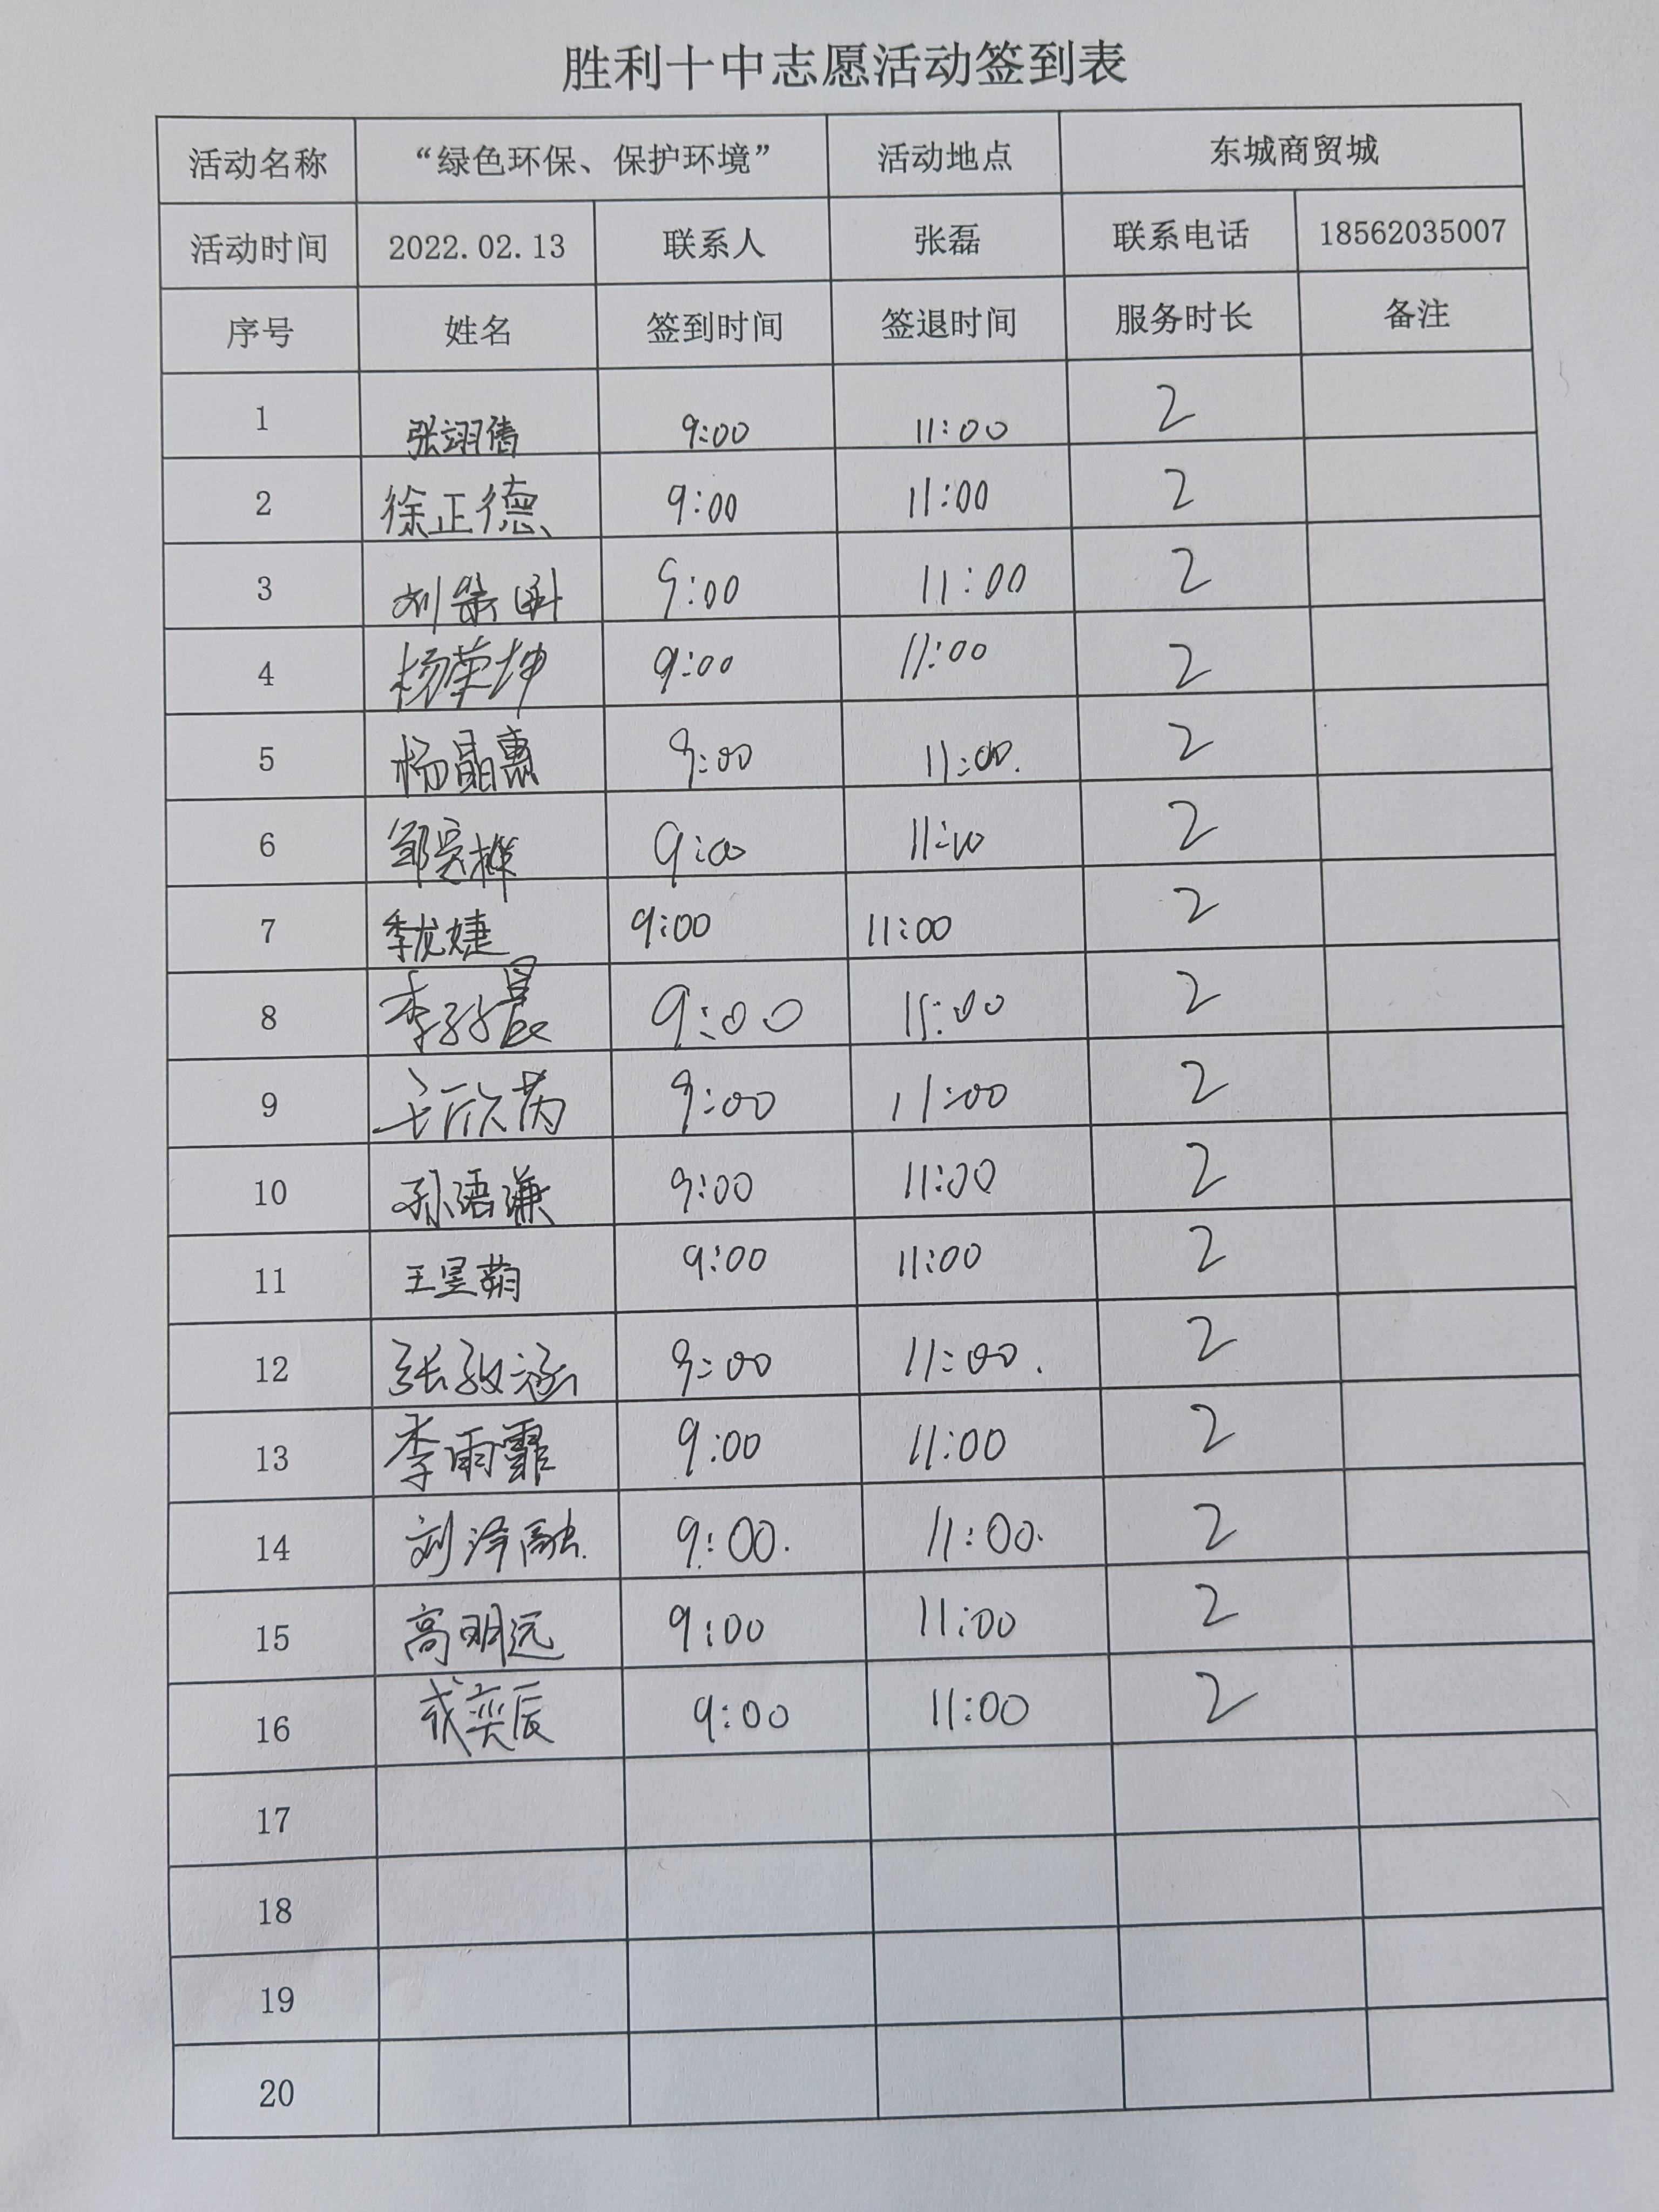 胜利十中志愿活动签到表
活动名称 “绿色环保、保护环境” 活动地点 东城商贸城
活动时间 2022.02.13 联系人 张磊 联系电话 18562035007
序号 姓名 签到时间 签退时间 服务时长 备注
1 张翊倩 9:00 11:00 2
2 徐正德 9:00 11:00 2
3 刘 9:00 11:00 2
4 杨荣坤 9:00 11:00 2
5 杨晶惠 9:00 11:00. 2
6 邹 9:00 11:00 2
7 李龙婕 9:00 11:00 2
8 李 晨 9:00 11:00 2
9 王欣芮 9:00 11:00 2
10 孙语谦 9:00 11:00 2
11 王昱蘅 9:00 11:00 2
12 张 涵 9:00 11:00. 2
13 李雨霏 9:00 11:00 2
14 刘泽融. 9:00. 11:00. 2
15 高明远 9:00 11:00 2
16 戎奕辰 9:00 11:00 2
17
18
19
20